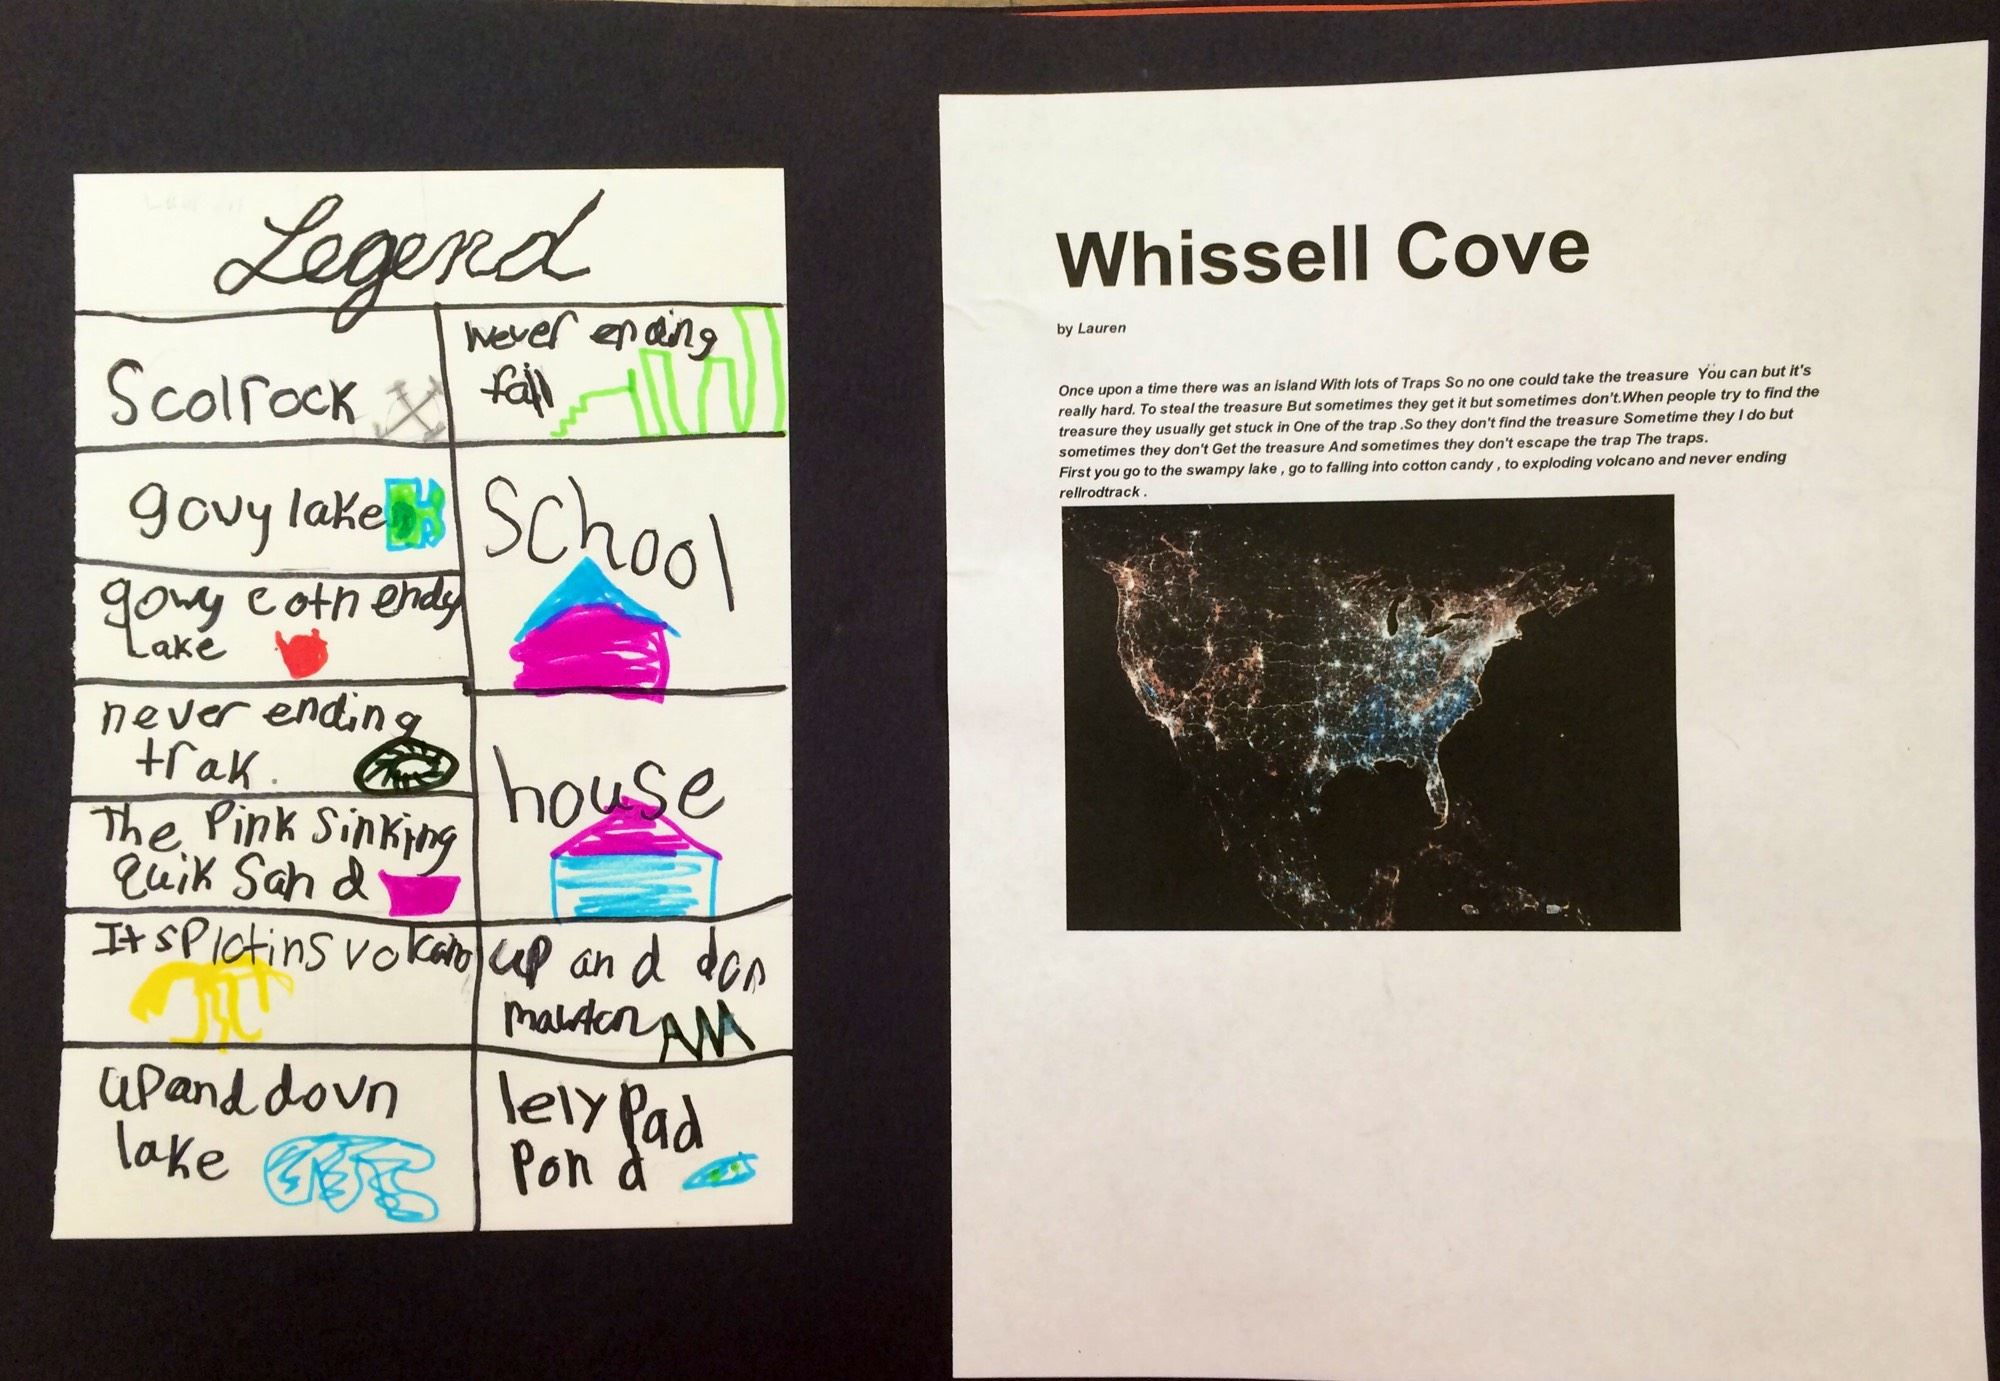 Legend
Scolrock
never ending
fall
govy lake
School
gowy cotn endy
Lake
never ending
trak.
house
The Pink Sinking
quik Sand
It sPlotins volcano
up and don
mawten
up and dovn
lake
lely Pad
Pond
Whissell Cove
by Lauren
Once upon a time there was an island With lots of Traps So no one could take the treasure You can but it's
really hard. To steal the treasure But sometimes they get it but sometimes don't.When people try to find the
treasure they usually get stuck in One of the trap .So they don't find the treasure Sometime they I do but
sometimes they don't Get the treasure And sometimes they don't escape the trap The traps.
First you go to the swampy lake , go to falling into cotton candy , to exploding volcano and never ending
rellrodtrack .